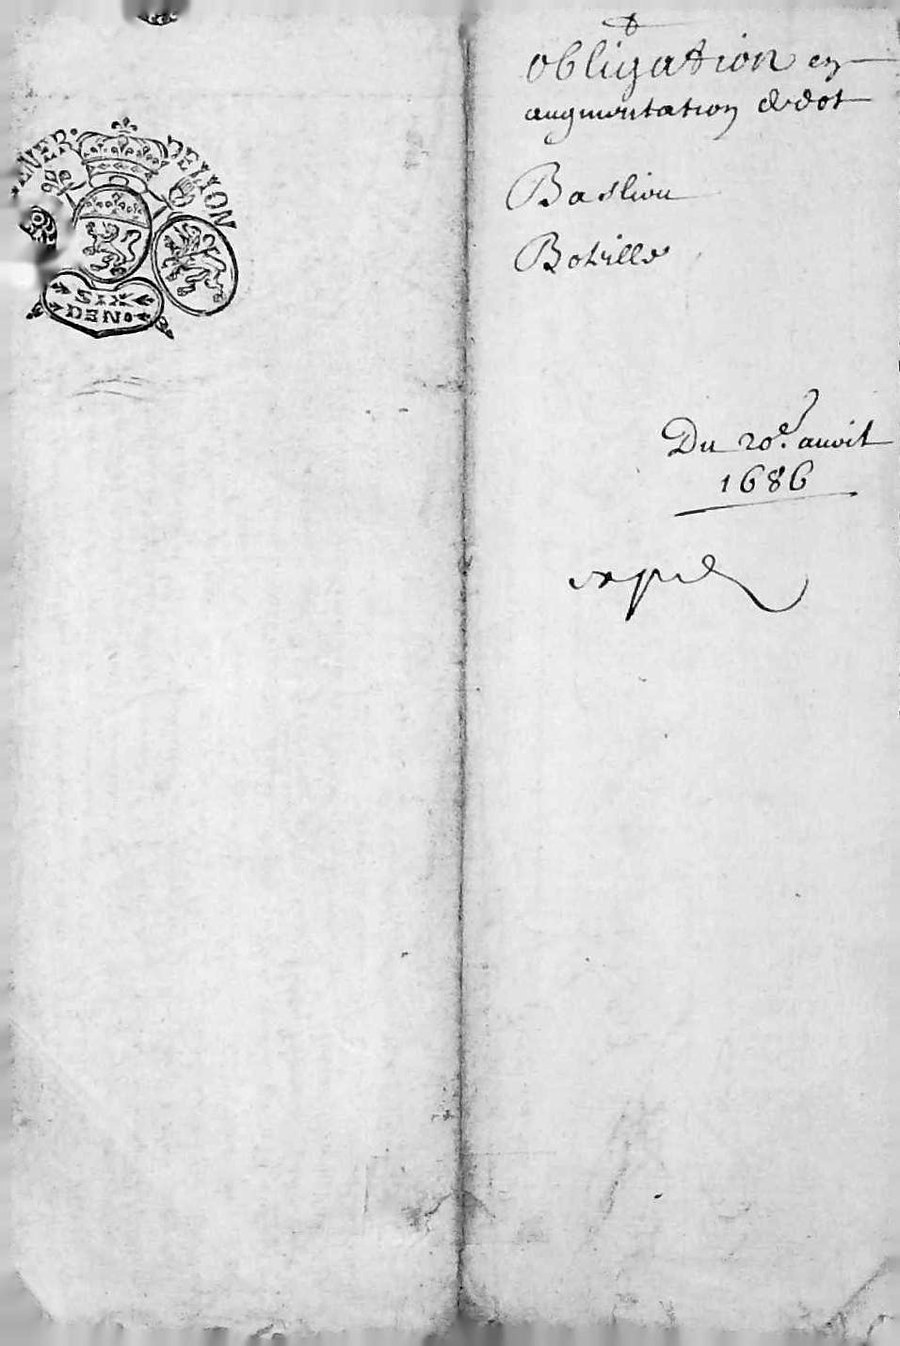 GENER. DE LION
SIX
DEN.
obligation en
augmentation de dot
Basliou
Botille
Du 20e. auvit
1686